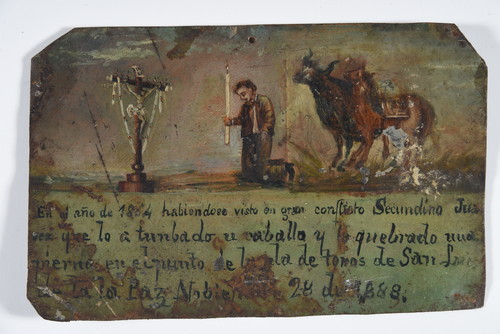 En el año de 1884 habiendose visto en gran conflicto Secundino Jua
rez que lo a tunbado un caballo y le quebrado una
pierna en el punto de la ala de toros de San
la Paz Nobiembre 28 de 1888.